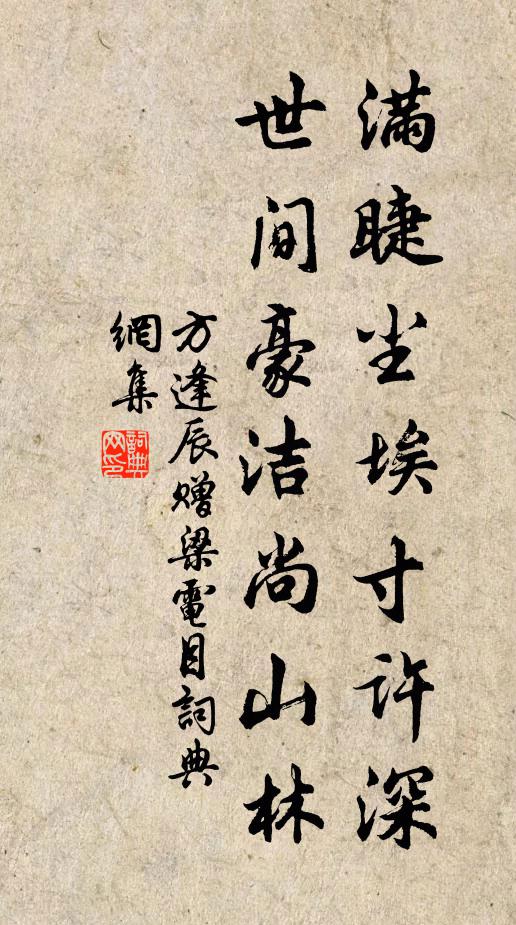 满睫尘埃寸许深
世间豪洁尚山林
方逢辰赠梁電目詞典
網集
詞典网印